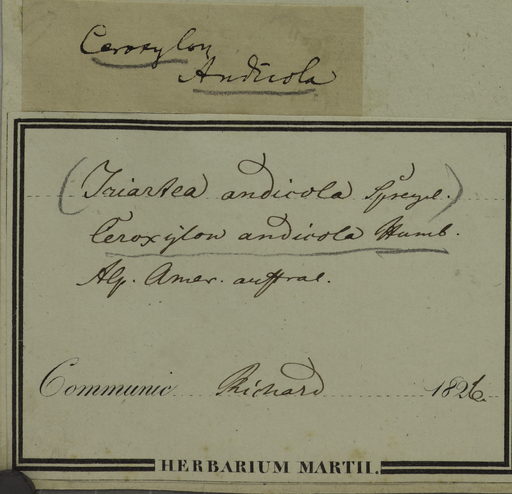 Ceroxylon
Andicola
(Iriartea andicola Spreng.)
Ceroxylon andicola Humb.
Alp. Amer. austral.
Communic Richard 1826.
HERBARIUM MARTII.